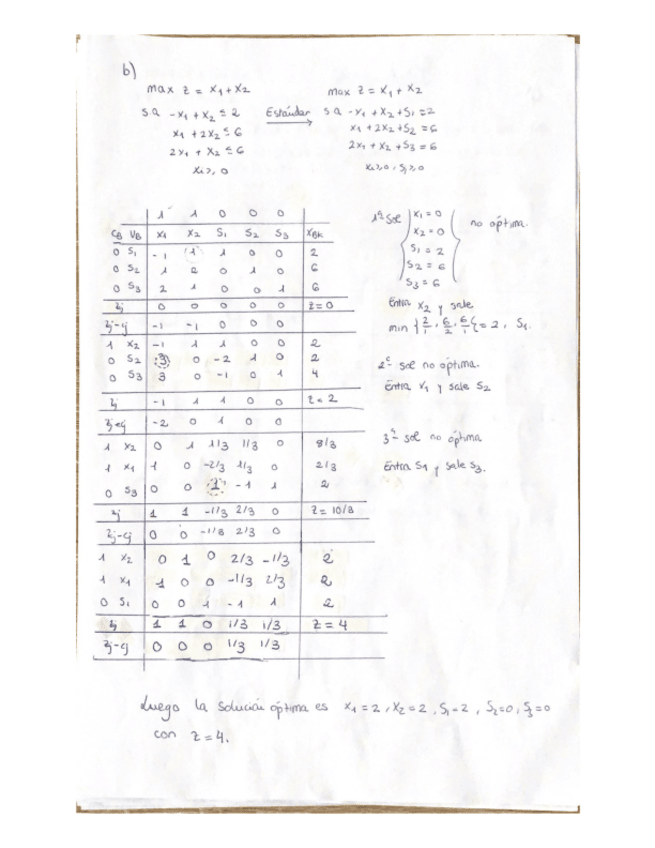 b)
max z = x1 + x2
s.a -x1 + x2 ≤ 2
x1 + 2x2 ≤ 6
2x1 + x2 ≤ 6
xi ≥ 0
Estándar
max z = x1 + x2
s.a -x1 + x2 + S1 = 2
x1 + 2x2 + S2 = 6
2x1 + x2 + S3 = 6
xi ≥ 0, Sj ≥ 0
1 1 0 0 0
CB VB x1 x2 S1 S2 S3 XBk
0 S1 -1 1 1 0 0 2
0 S2 1 2 0 1 0 6
0 S3 2 1 0 0 1 6
zj 0 0 0 0 0 z=0
zj-cj -1 -1 0 0 0
1 x2 -1 1 1 0 0 2
0 S2 3 0 -2 1 0 2
0 S3 3 0 -1 0 1 4
zj -1 1 1 0 0 z=2
zj-cj -2 0 1 0 0
1 x2 0 1 1/3 1/3 0 8/3
1 x1 1 0 -2/3 1/3 0 2/3
0 S3 0 0 1 -1 1 2
zj 1 1 -1/3 2/3 0 z=10/3
zj-cj 0 0 -1/3 2/3 0
1 x2 0 1 0 2/3 -1/3 2
1 x1 1 0 0 -1/3 2/3 2
0 S1 0 0 1 -1 1 2
zj 1 1 0 1/3 1/3 z=4
zj-cj 0 0 0 1/3 1/3
1ª sol { x1 = 0 } no óptima.
x2 = 0
S1 = 2
S2 = 6
S3 = 6
Entra x2 y sale
min {2/1, 6/2, 6/1} = 2, S1.
2ª sol no óptima.
Entra x1 y sale S2
3ª sol no óptima
Entra S1 y sale S3.
Luego la solución óptima es x1 = 2, x2 = 2, S1 = 2, S2 = 0, S3 = 0
con z = 4.